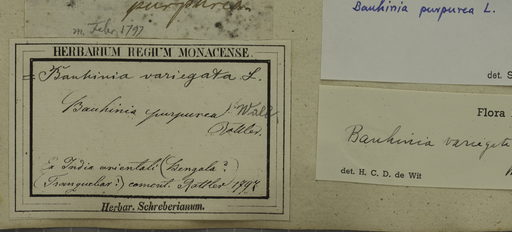 purpurea
m. Febr. 1797
HERBARIUM REGIUM MONACENSE.
= Bauhinia variegata L.
Bauhinia purpurea Wald.
Rottler.
Ex India orientali (Bengala?)
(Tranquebar?) comm. Rottler 1797
Herbar. Schreberianum.
Bauhinia purpurea L.
det. S
Flora
Bauhinia variegata
det. H. C. D. de Wit